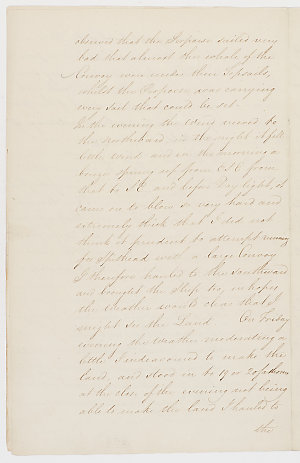 observed that the Porpoise sailed very
bad that almost the whole of the
Convoy were under their Topsails,
whilst the Porpoise was carrying
every sail that could be set.
In the evening the Wind veered to
the Northward in the night it fell
little wind and in the morning a
breeze sprung up from ESE from
that to SE and before Day light, it
came on to blow so very hard and
extremely thick that I did not
think it prudent to attempt running
for Spithead with a large Convoy
I therefore hauled to the Southward
and brought the Ship to, in hopes
the weather would clear that I
might see the Land On Friday
evening the weather moderating a
little I endeavoured to make the
land, and stood in to 19 or 20 fathoms
at the close of the evening not being
able to make the land I hauled to
the